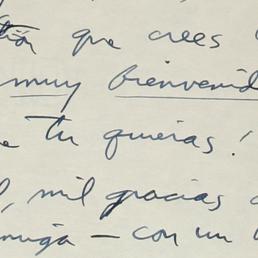 que crees
muy bienvenid
tu quieras!
, mil gracias
amiga — con un